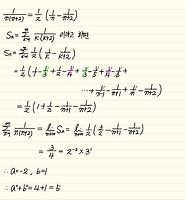 1/n(n+2) = 1/2 (1/n - 1/n+2)
Sₙ = Σ 1/k(k+2) 이라고 하면
Sₙ = Σ 1/2 (1/k - 1/k+2)
= 1/2 (1 - 1/3 + 1/2 - 1/4 + 1/3 - 1/5 + 1/4 - 1/6 +
⋯ + 1/n-1 - 1/n+1 + 1/n - 1/n+2)
= 1/2 (1 + 1/2 - 1/n+1 - 1/n+2)
Σ 1/n(n+2) = lim Sₙ = lim 1/2 (3/2 - 1/n+1 - 1/n+2)
= 3/4 = 2⁻² × 3¹
∴ a = -2 , b = 1
∴ a² + b² = 4 + 1 = 5